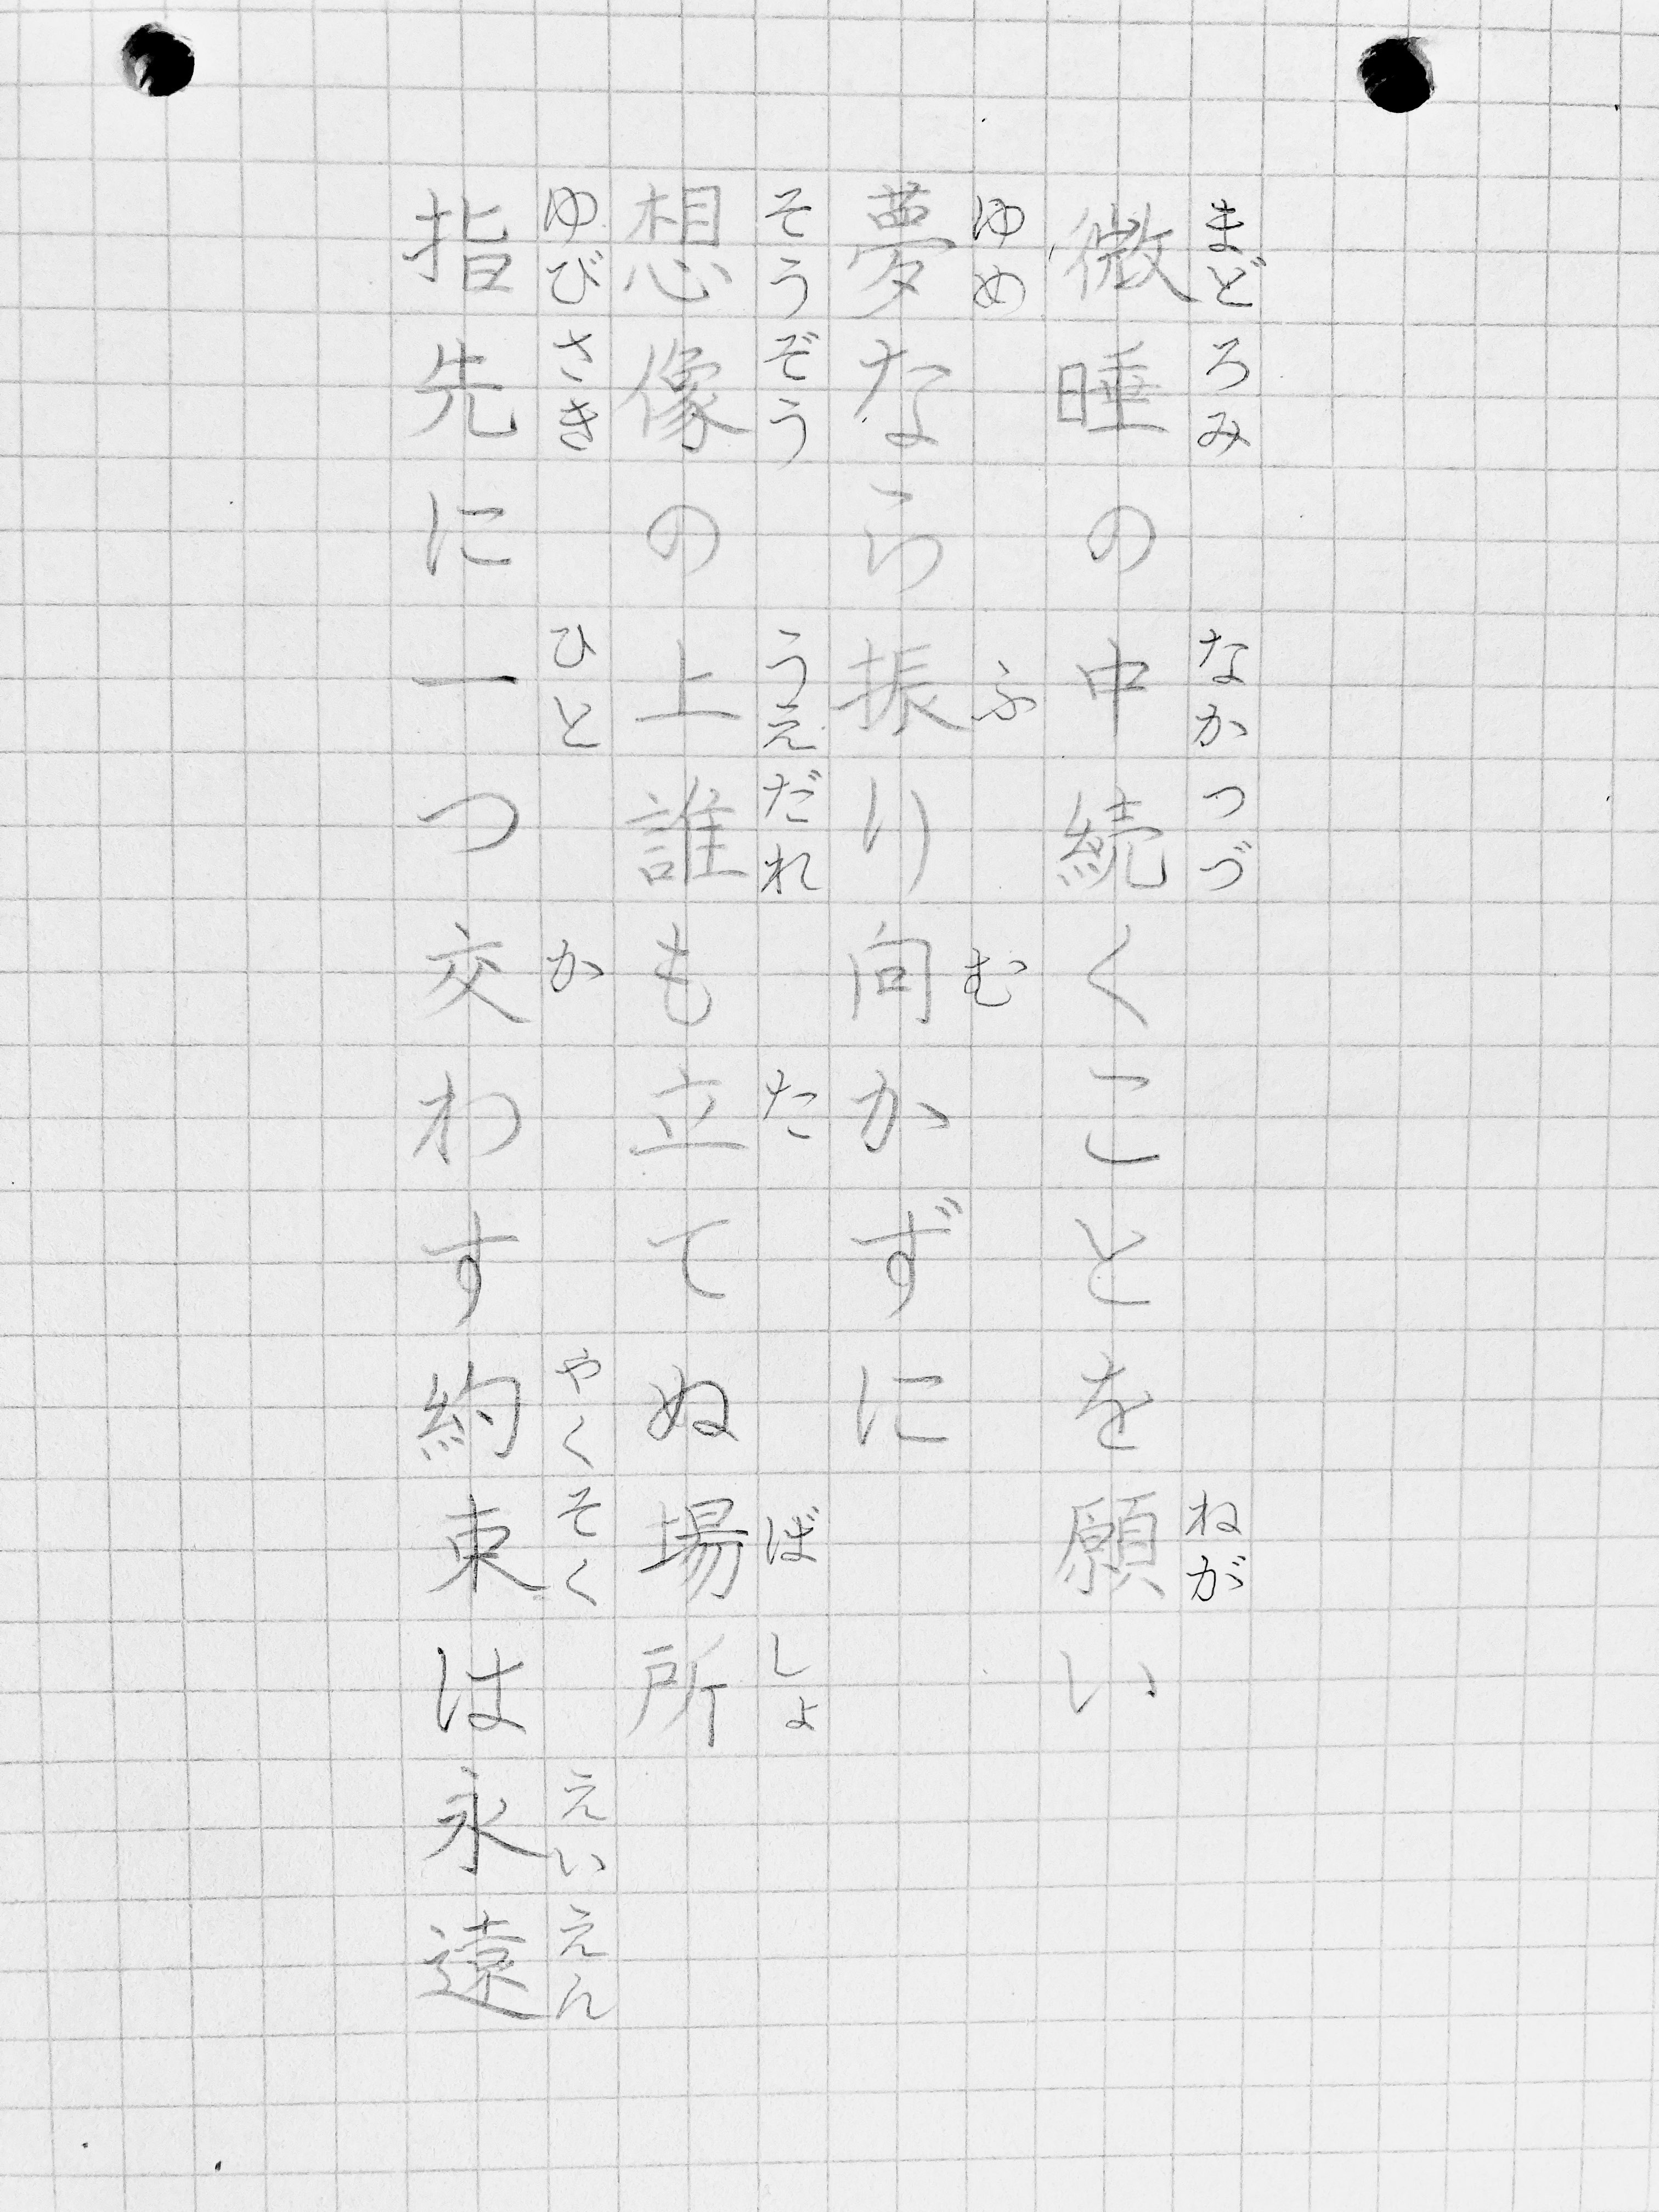 微睡の中続くことを願い
夢なら振り向かずに
想像の上誰も立てぬ場所
指先に一つ交わす約束は永遠
まどろみ なか つづ ねが
ゆめ ふ む
そうぞう うえ だれ た ばしょ
ゆびさき ひと か やくそく えいえん